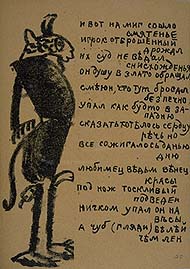 И ВОТ НА МИГ СОШЛО
СМЯТЕНЬЕ
ИГРОК ОТБРОШЕННЫЙ
ДРОЖАЛ
ИХ СУД НЕ ВЕДАЛ
СНИСХОЖДЕНЬЯ
ОН ДУШУ В ЗЛАТО ОБРАЩАЛ
СМЕЮН ЧТО ТУТ БРОСАЛ
БЕЗПЕЧНО
УПАЛ КАК БУДТО В ЗА-
ПАДНЮ
СКАЗАТЬ ХОТЕЛОСЬ СЕРДЦУ
НЕЧЬНО
ВСЕ СОЖИГАЛОСЬ ДАНЬЮ
ДНЮ
ЛЮБИМЕЦ ВЕДЬМ ВЕНЕЦ
КРАСЫ
ПОД НОЖ ТОСКЛИВЫЙ
ПОДВЕДЕН
НИЧКОМ УПАЛ ОН НА
ВЕСЫ
А ЧУБ (ГЛЯДИ) БЕЛЕЙ
ЧЕМ ЛЕН